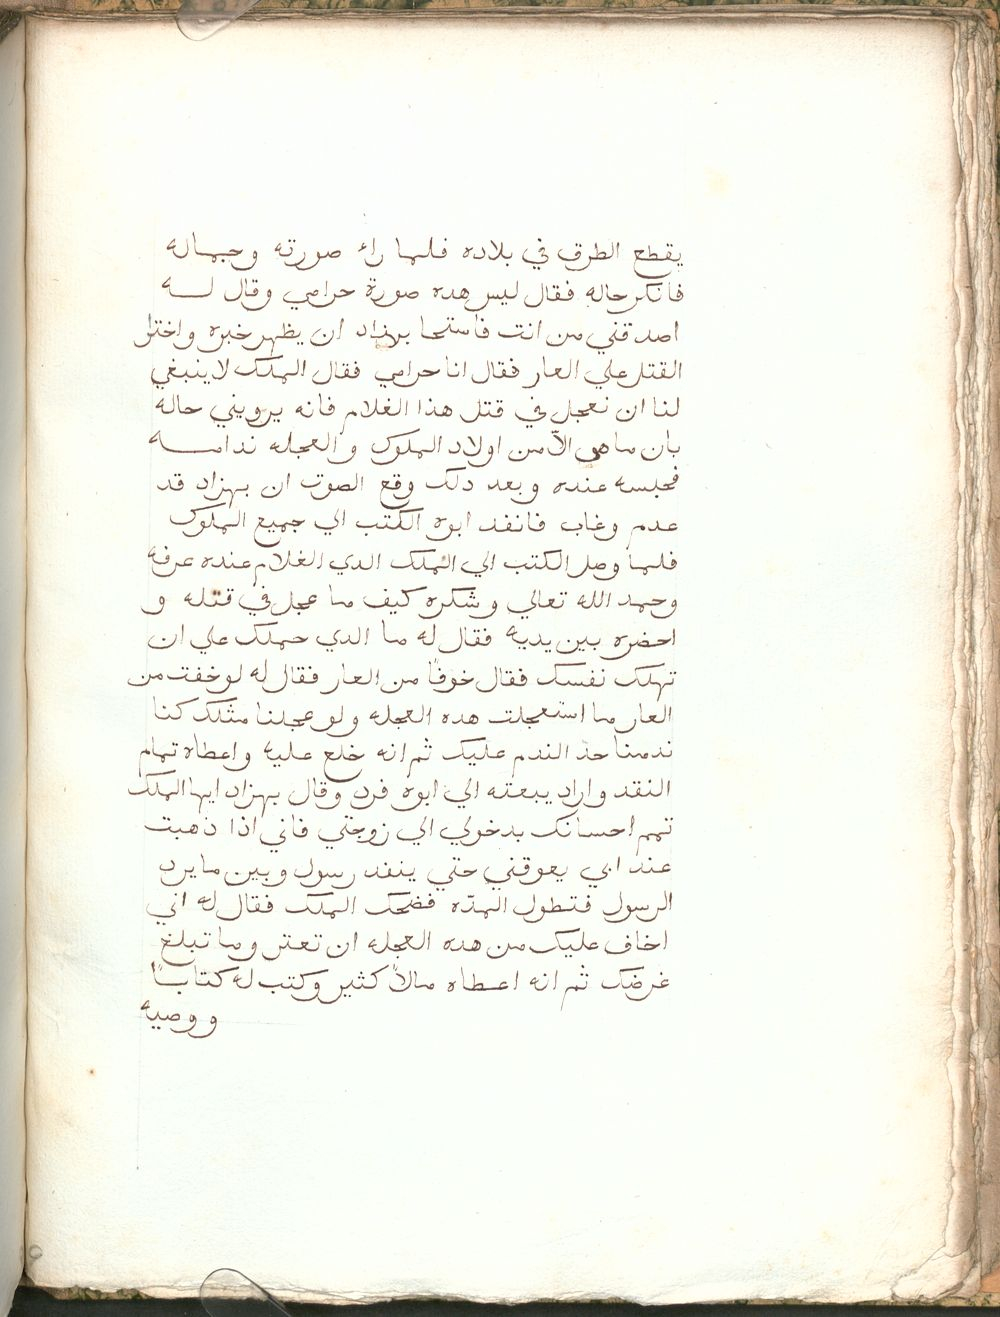 يقطع الطرق في بلاده فلما راء صورته وجماله
فانكر حاله فقال ليس هده صورة حرامي وقال لـــه
اصدقني من انت فاستحا برزاد ان يظهر خبره واختار
القتل علي العار فقال انا حرامي فقال الملك لا ينبغي
لنا ان نعجل في قتل هذا الغلام فانه يرويني حاله
بان ما هو الاّ من اولاد الملوك والعجله ندامـــه
فحبسه عنده وبعد دلك وقع الصوت ان بهزاد قد
عدم وغاب فانفد ابوه الكتب الي جميع الملوك
فلما وصل الكتب الي الملك الدي الغلام عنده عرفه
وحمد الله تعالي وشكره كيف ما عجل في قتله و
احضره بين يديه فقال له ما الدي حملك علي ان
تهلك نفسك فقال خوفًا من العار فقال له لو خفت من
العار ما استعجلت هده العجله ولو عجلنا مثلك كنا
ندمنا حد الندم عليك ثم انه خلع عليه واعطاه تمام
النقد واراد يبعته الي ابوه فرد وقال بهزاد ايها الملك
تمم احسانك بدخولي الي زوجتي فاني اذا ذهبت
عند ابي يعوقني حتي ينفد رسول وبين ما يرد
الرسول فتطول المدّه فضحك الملك فقال له اني
اخاف عليك من هده العجله ان تعتر وما تبلغ
غرضك ثم انه اعطاه مالاً كثير وكتب له كتابًا
ووصيه